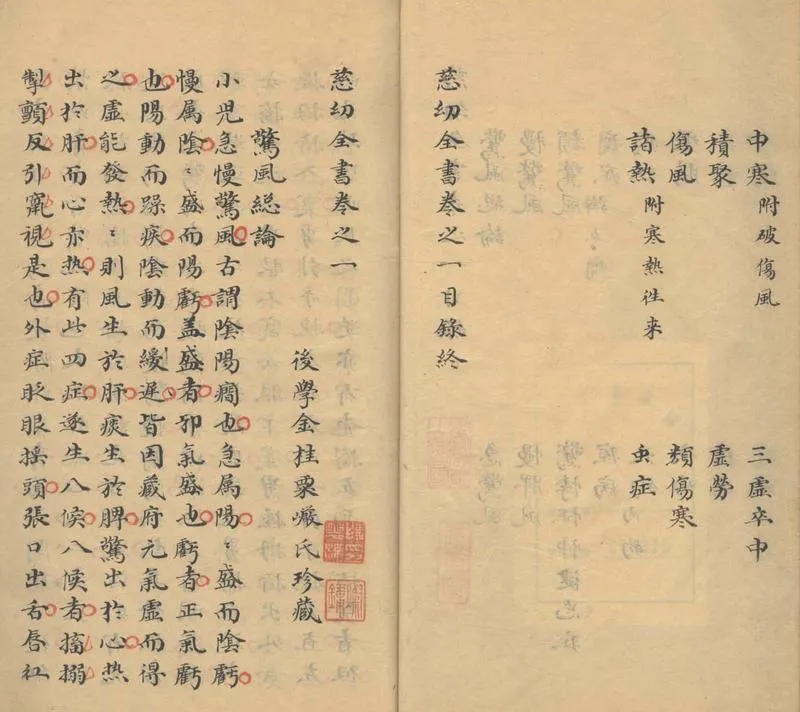 中寒附破傷風　三虛卒中
積聚　虛勞
傷風　類傷寒
諸熱附寒熱徃来　虫症
慈㓜全書卷之一目錄終
慈㓜全書卷之一
後學金挂粟巗氏珍藏
驚風総論
小児急慢驚風古謂陰陽癇也急属陽〻盛而陰虧
慢属陰〻盛而陽虧盖盛者邪氣盛也虧者正氣虧
也陽動而躁疾陰動而緩遅皆因藏府元氣虛而得
之虛能發熱〻則風生於肝痰生於脾驚出於心熱
出於肝而心亦热有此四症遂生八候八候者搐搦
掣顫反引竄視是也外症眨眼揺頭張口出舌唇红